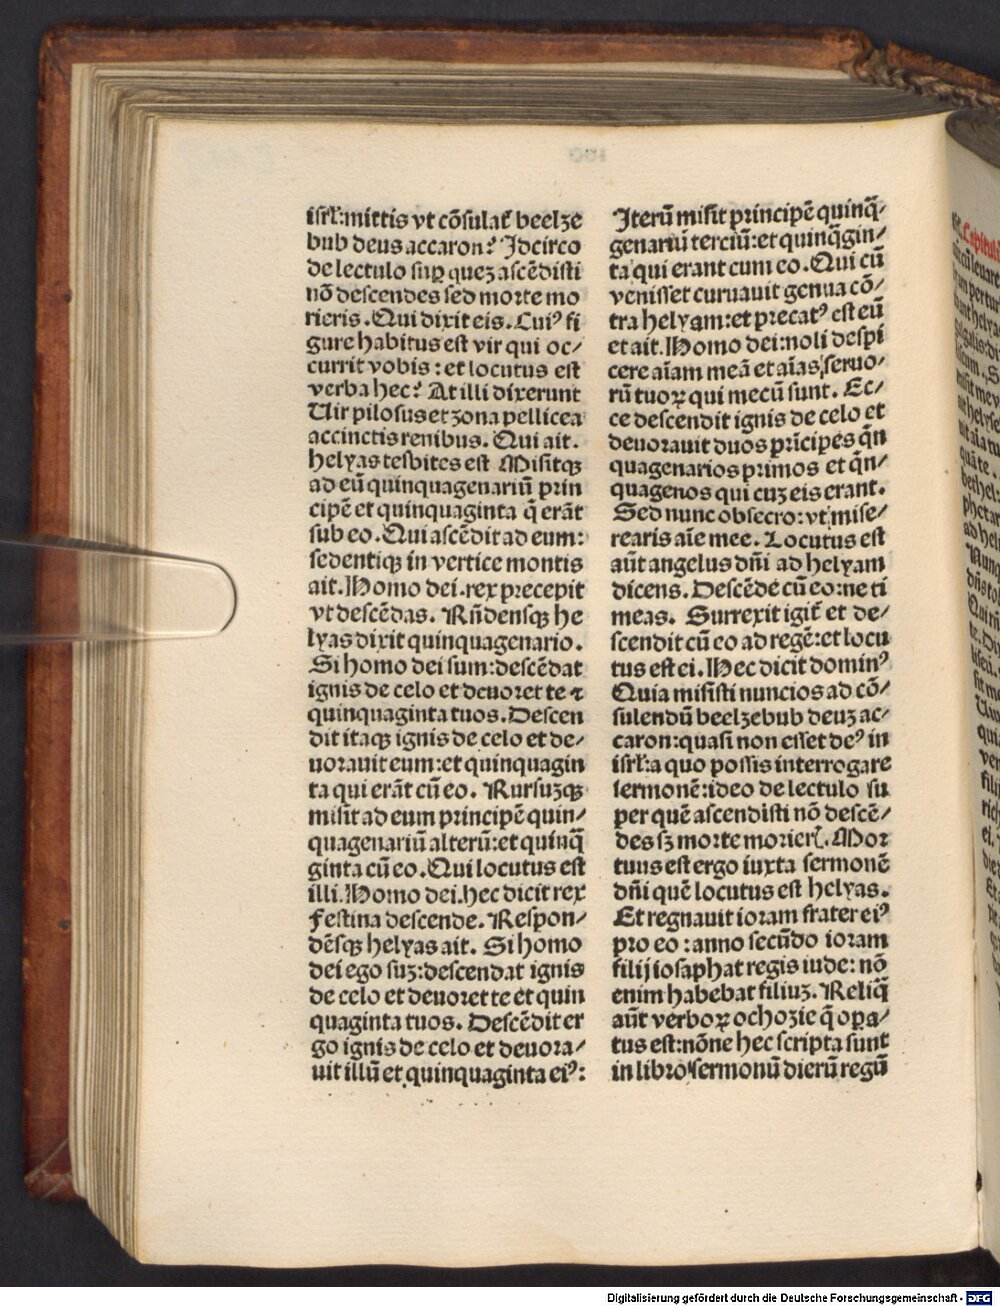 isrl̄:mittis vt cōsulat᷑ beelze
bub deus accaron? Idcirco
de lectulo suꝑ quez ascēdisti
nō descendes sed morte mo
rieris. Qui dixit eis. Cuiꝰ fi
gure habitus est vir qui oc⸗
currit vobis: et locutus est
verba hec? At illi dixerunt
Uir pilosus et zona pellicea
accinctis renibus. Qui ait.
helyas tesbites est Misitqꝫ
ad eū quinquagenariū prin
cipē et quinquaginta q̄ erāt
sub eo. Qui ascēdit ad eum:
sedentiqꝫ in vertice montis
ait. Homo dei. rex precepit
vt descēdas. Rn̄densqꝫ he
lyas dixit quinquagenario.
Si homo dei sum: descēdat
ignis de celo et deuoret te ⁊
quinquaginta tuos. Descen
dit itaqꝫ ignis de celo et de⸗
uorauit eum: et quinquagin
ta qui erāt cū eo. Rursuzqꝫ
misit ad eum principē quin⸗
quagenariū alterū: et quinq̄
ginta cū eo. Qui locutus est
illi. Homo dei. hec dicit rex
Festina descende. Respon⸗
dēsqꝫ helyas ait. Si homo
dei ego suz: descendat ignis
de celo et deuoret te et quin
quaginta tuos. Descēdit er
go ignis de celo et deuora⸗
uit illū et quinquaginta eiꝰ:
Iterū misit principē quinq̄⸗
genariū terciū: et quinq̄gin⸗
ta qui erant cum eo. Qui cū
venisset curuauit genua cō⸗
tra helyam: et precatꝰ est eū
et ait. Homo dei: noli despi
cere aīam meā et aīas seruo⸗
rū tuoꝝ qui mecū sunt. Ec⸗
ce descendit ignis de celo et
deuorauit duos prīcipes q̄n
quagenarios primos et q̄n⸗
quagenos qui cuz eis erant.
Sed nunc obsecro: vt mise⸗
rearis aīe mee. Locutus est
aūt angelus dn̄i ad helyam
dicens. Descēde cū eo: ne ti
meas. Surrexit igit᷑ et de⸗
scendit cū eo ad regē: et locu
tus est ei. Hec dicit dominꝰ
Quia misisti nuncios ad cō⸗
sulendū beelzebub deuz ac⸗
caron: quasi non esset deꝰ in
isrl̄: a quo possis interrogare
sermonē: ideo de lectulo su
per quē ascendisti nō descē⸗
des sꝫ morte morier̄. Mor
tuus est ergo iuxta sermonē
dn̄i quē locutus est helyas.
Et regnauit ioram frater eiꝰ
pro eo: anno secūdo ioram
filij iosaphat regis iude: nō
enim habebat filiuz. Reliq̄
aūt verboꝝ ochozie q̄ oꝑa⸗
tus est: nōne hec scripta sunt
in libro sermonū dierū regū
Digitalisierung gefördert durch die Deutsche Forschungsgemeinschaft - DFG